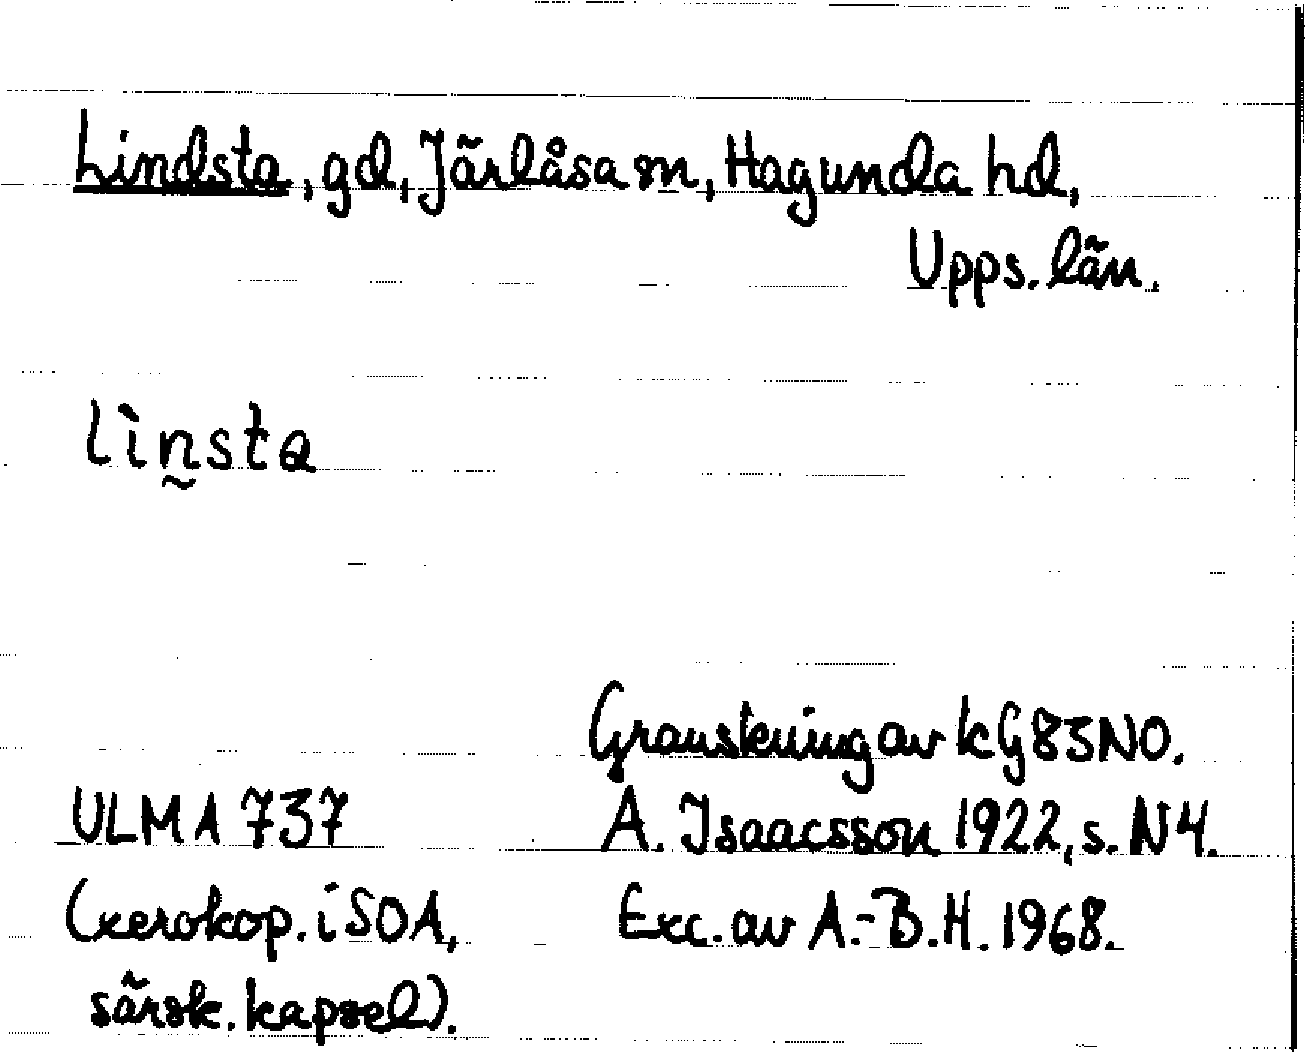 Lindsta, gd, Järlåsa sn, Hagunda hd,
Upps. län.
lìn̰sta
Granskning av kG83NO.
ULMA 737 A. Isaacsson 1922, s. N4.
(xerokop. i SOA, Exc. av A.-B.H. 1968.
särsk. kapsel).